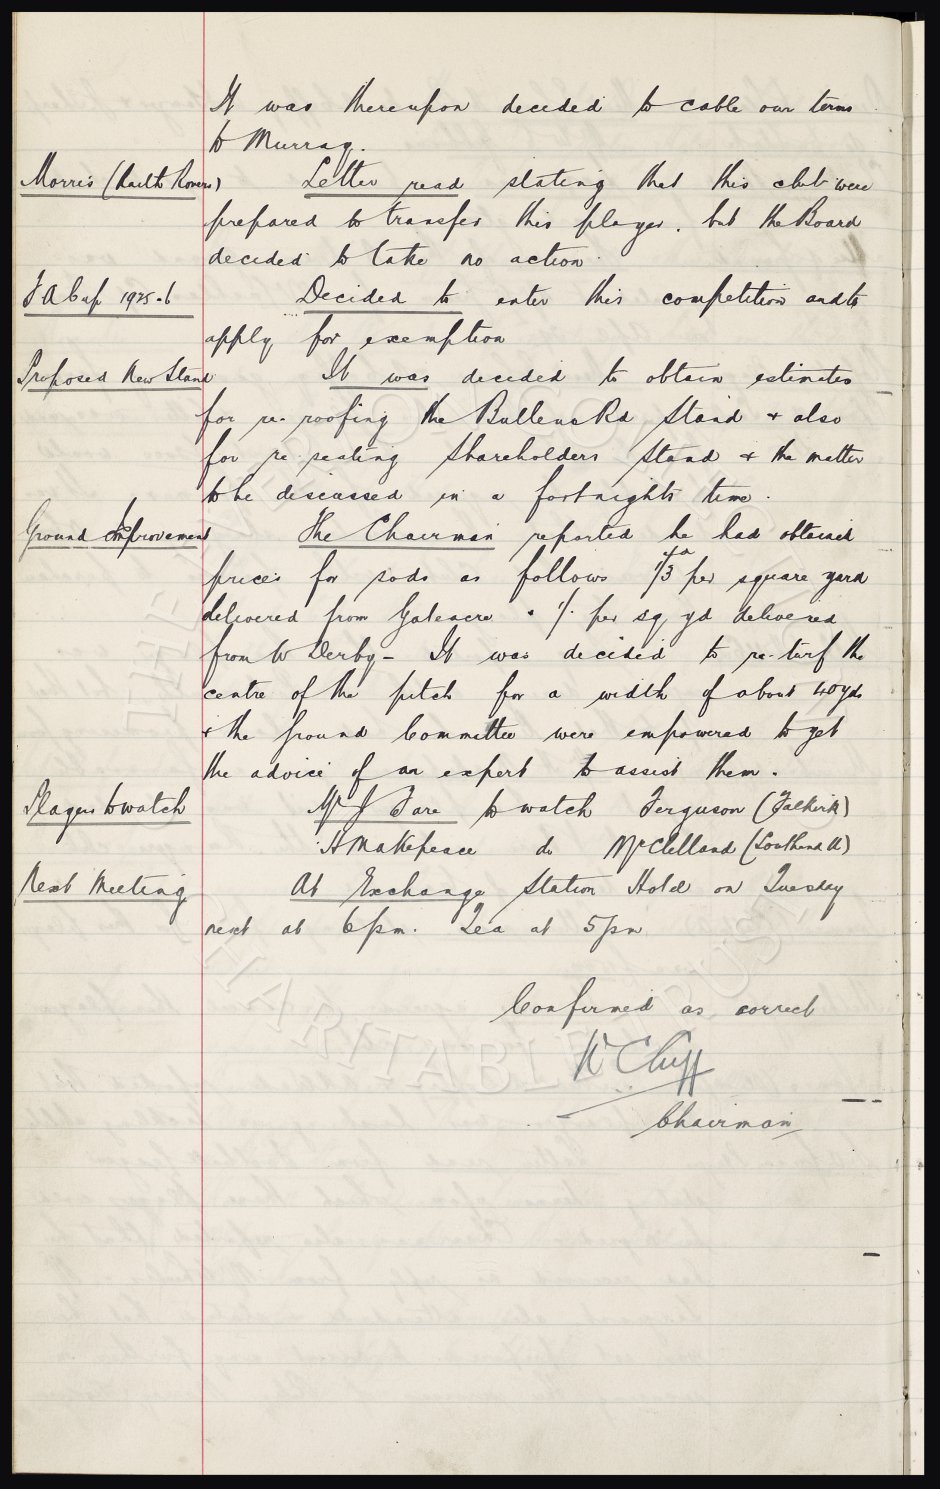 It was thereupon decided to cable our terms
to Murray.
Morris (Raith Rovers) Letter read stating that this club were
prepared to transfer this player, but the Board
decided to take no action.
F A Cup 1925-6 Decided to enter this competition and to
apply for exemption
Proposed New Stand It was decided to obtain estimates
for re-roofing the Bullens Rd Stand + also
for re-seating Shareholders Stand + the matter
to be discussed in a fortnights time.
Ground Improvement The Chairman reported he had obtained
prices for sods as follows 1/3 per square yard
delivered from Gateacre + 1/- per sq yd delivered
from W Derby - It was decided to re-turf the
centre of the pitch for a width of about 40 yds
+ the Ground Committee were empowered to get
the advice of an expert to assist them.
Players to watch Mr J Fare to watch Ferguson (Falkirk)
A Makepeace do McClelland (Southend U)
Next Meeting At Exchange Station Hotel on Tuesday
next at 6pm. Tea at 5pm
Confirmed as correct
W C Cuff
Chairman
CHARITABLE